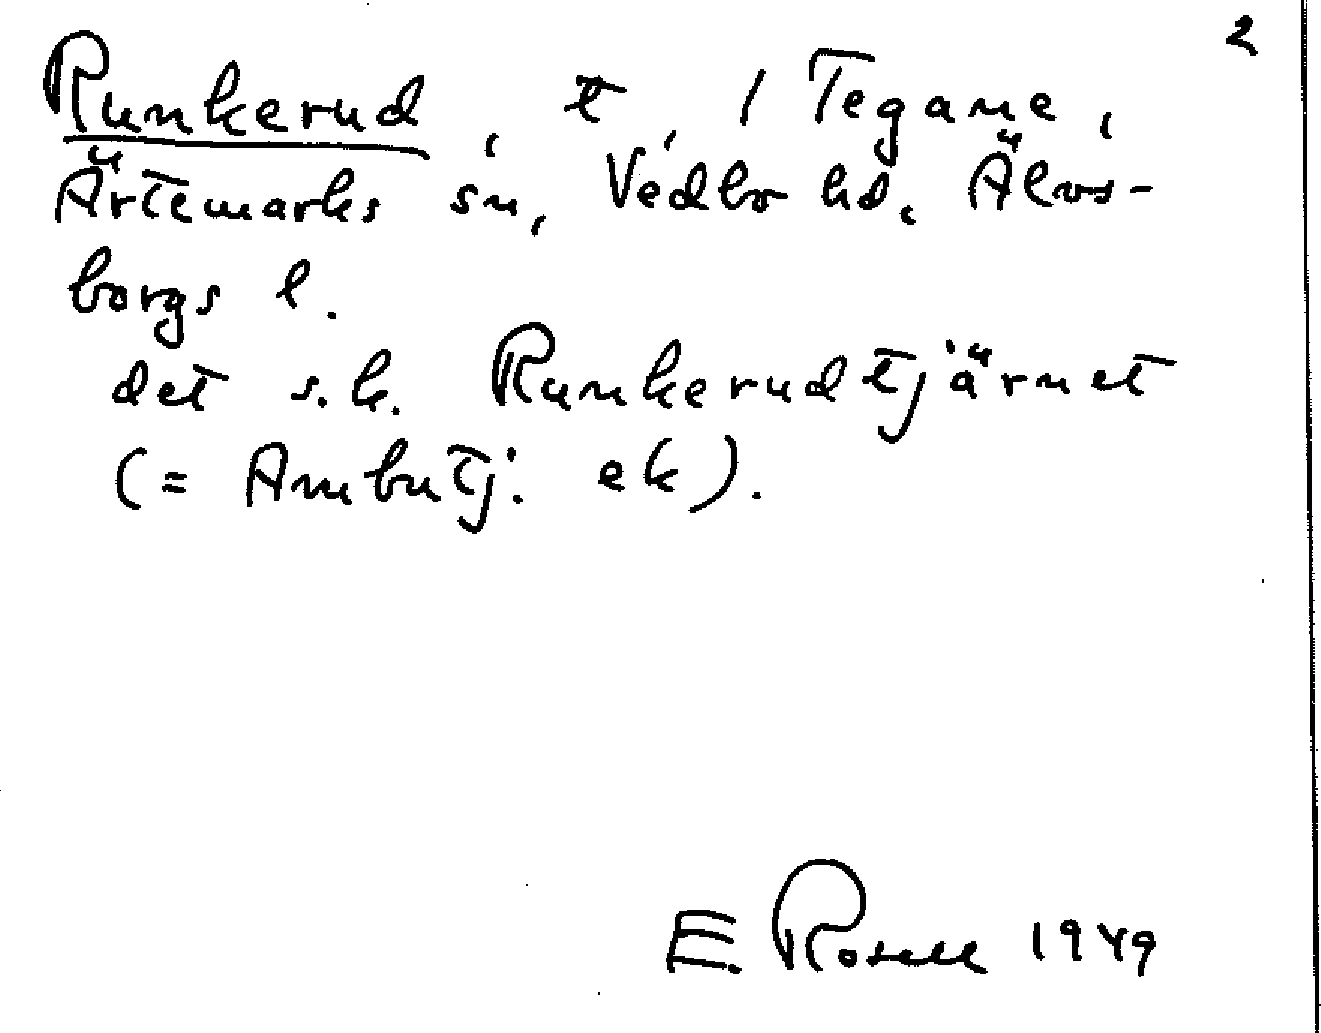 2
Runkerud, t, / Tegane,
Ärtemarks sn, Vedbo hd, Älvs-
borgs l.
det s.k. Runkerudtjärnet
(= Ambutj: ek).
E. Rosell 1949